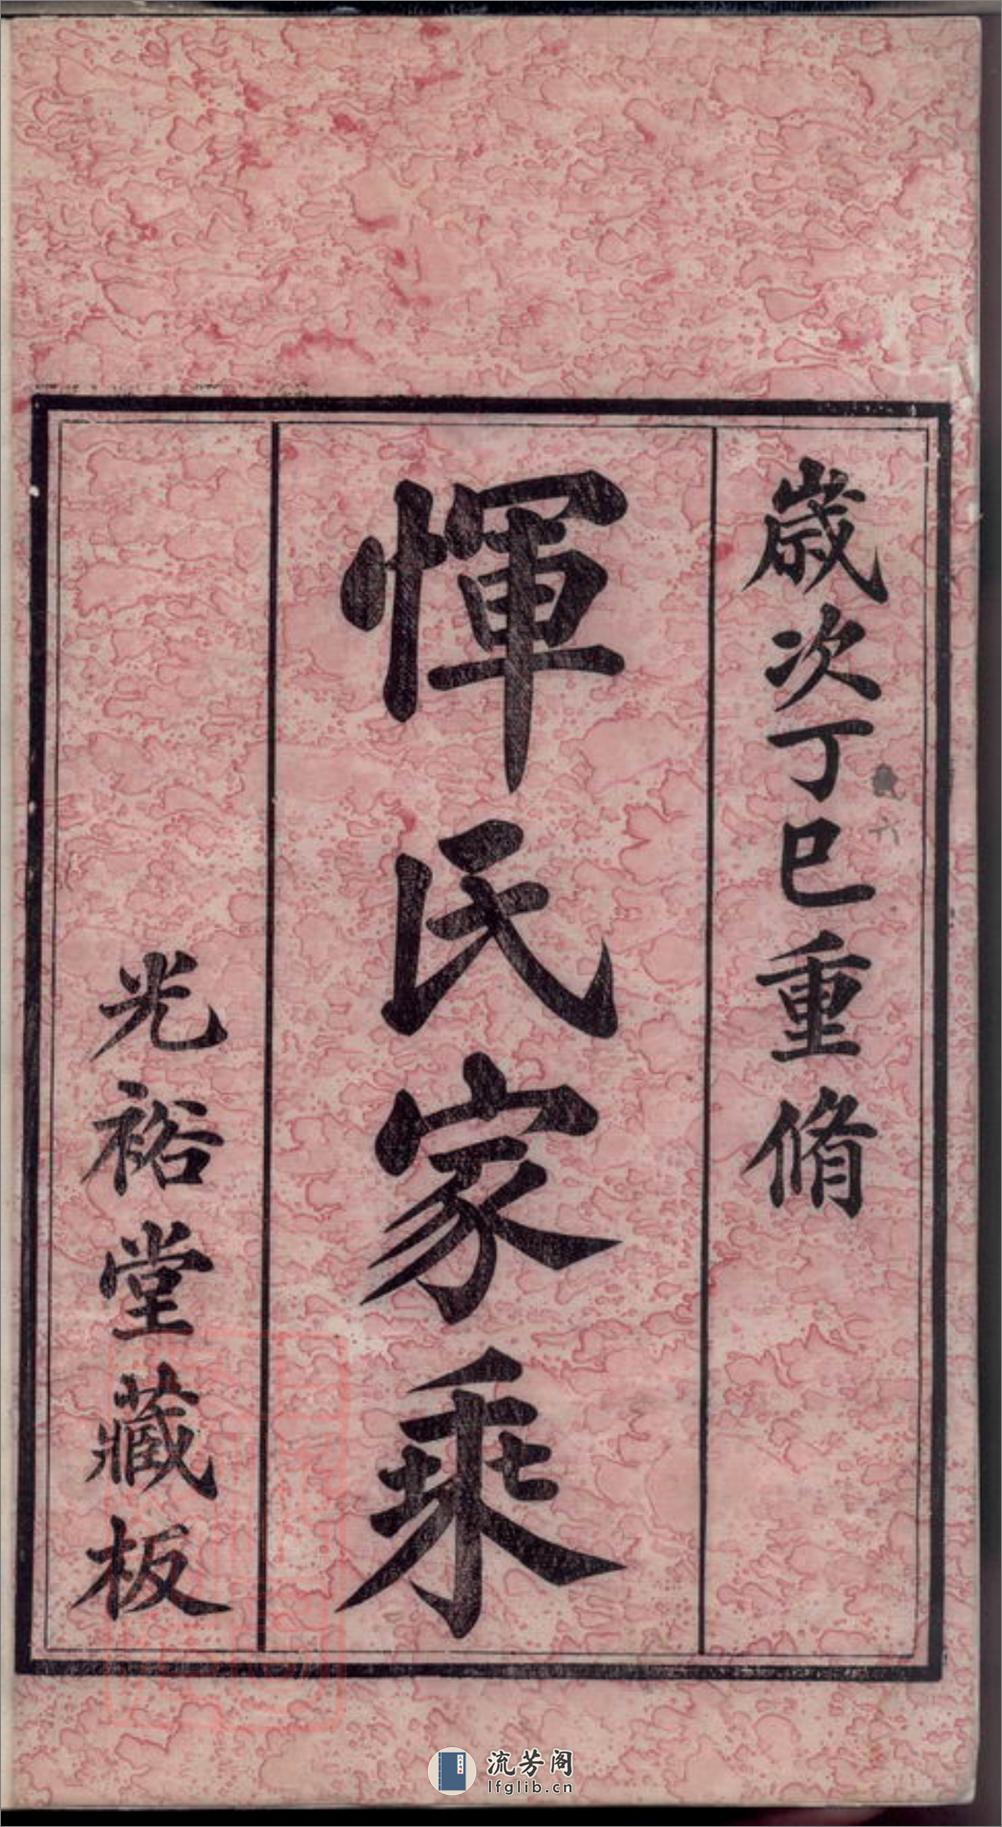 歲次丁巳重脩
惲氏家乘
光裕堂藏板
流芳阁
lfglib.cn